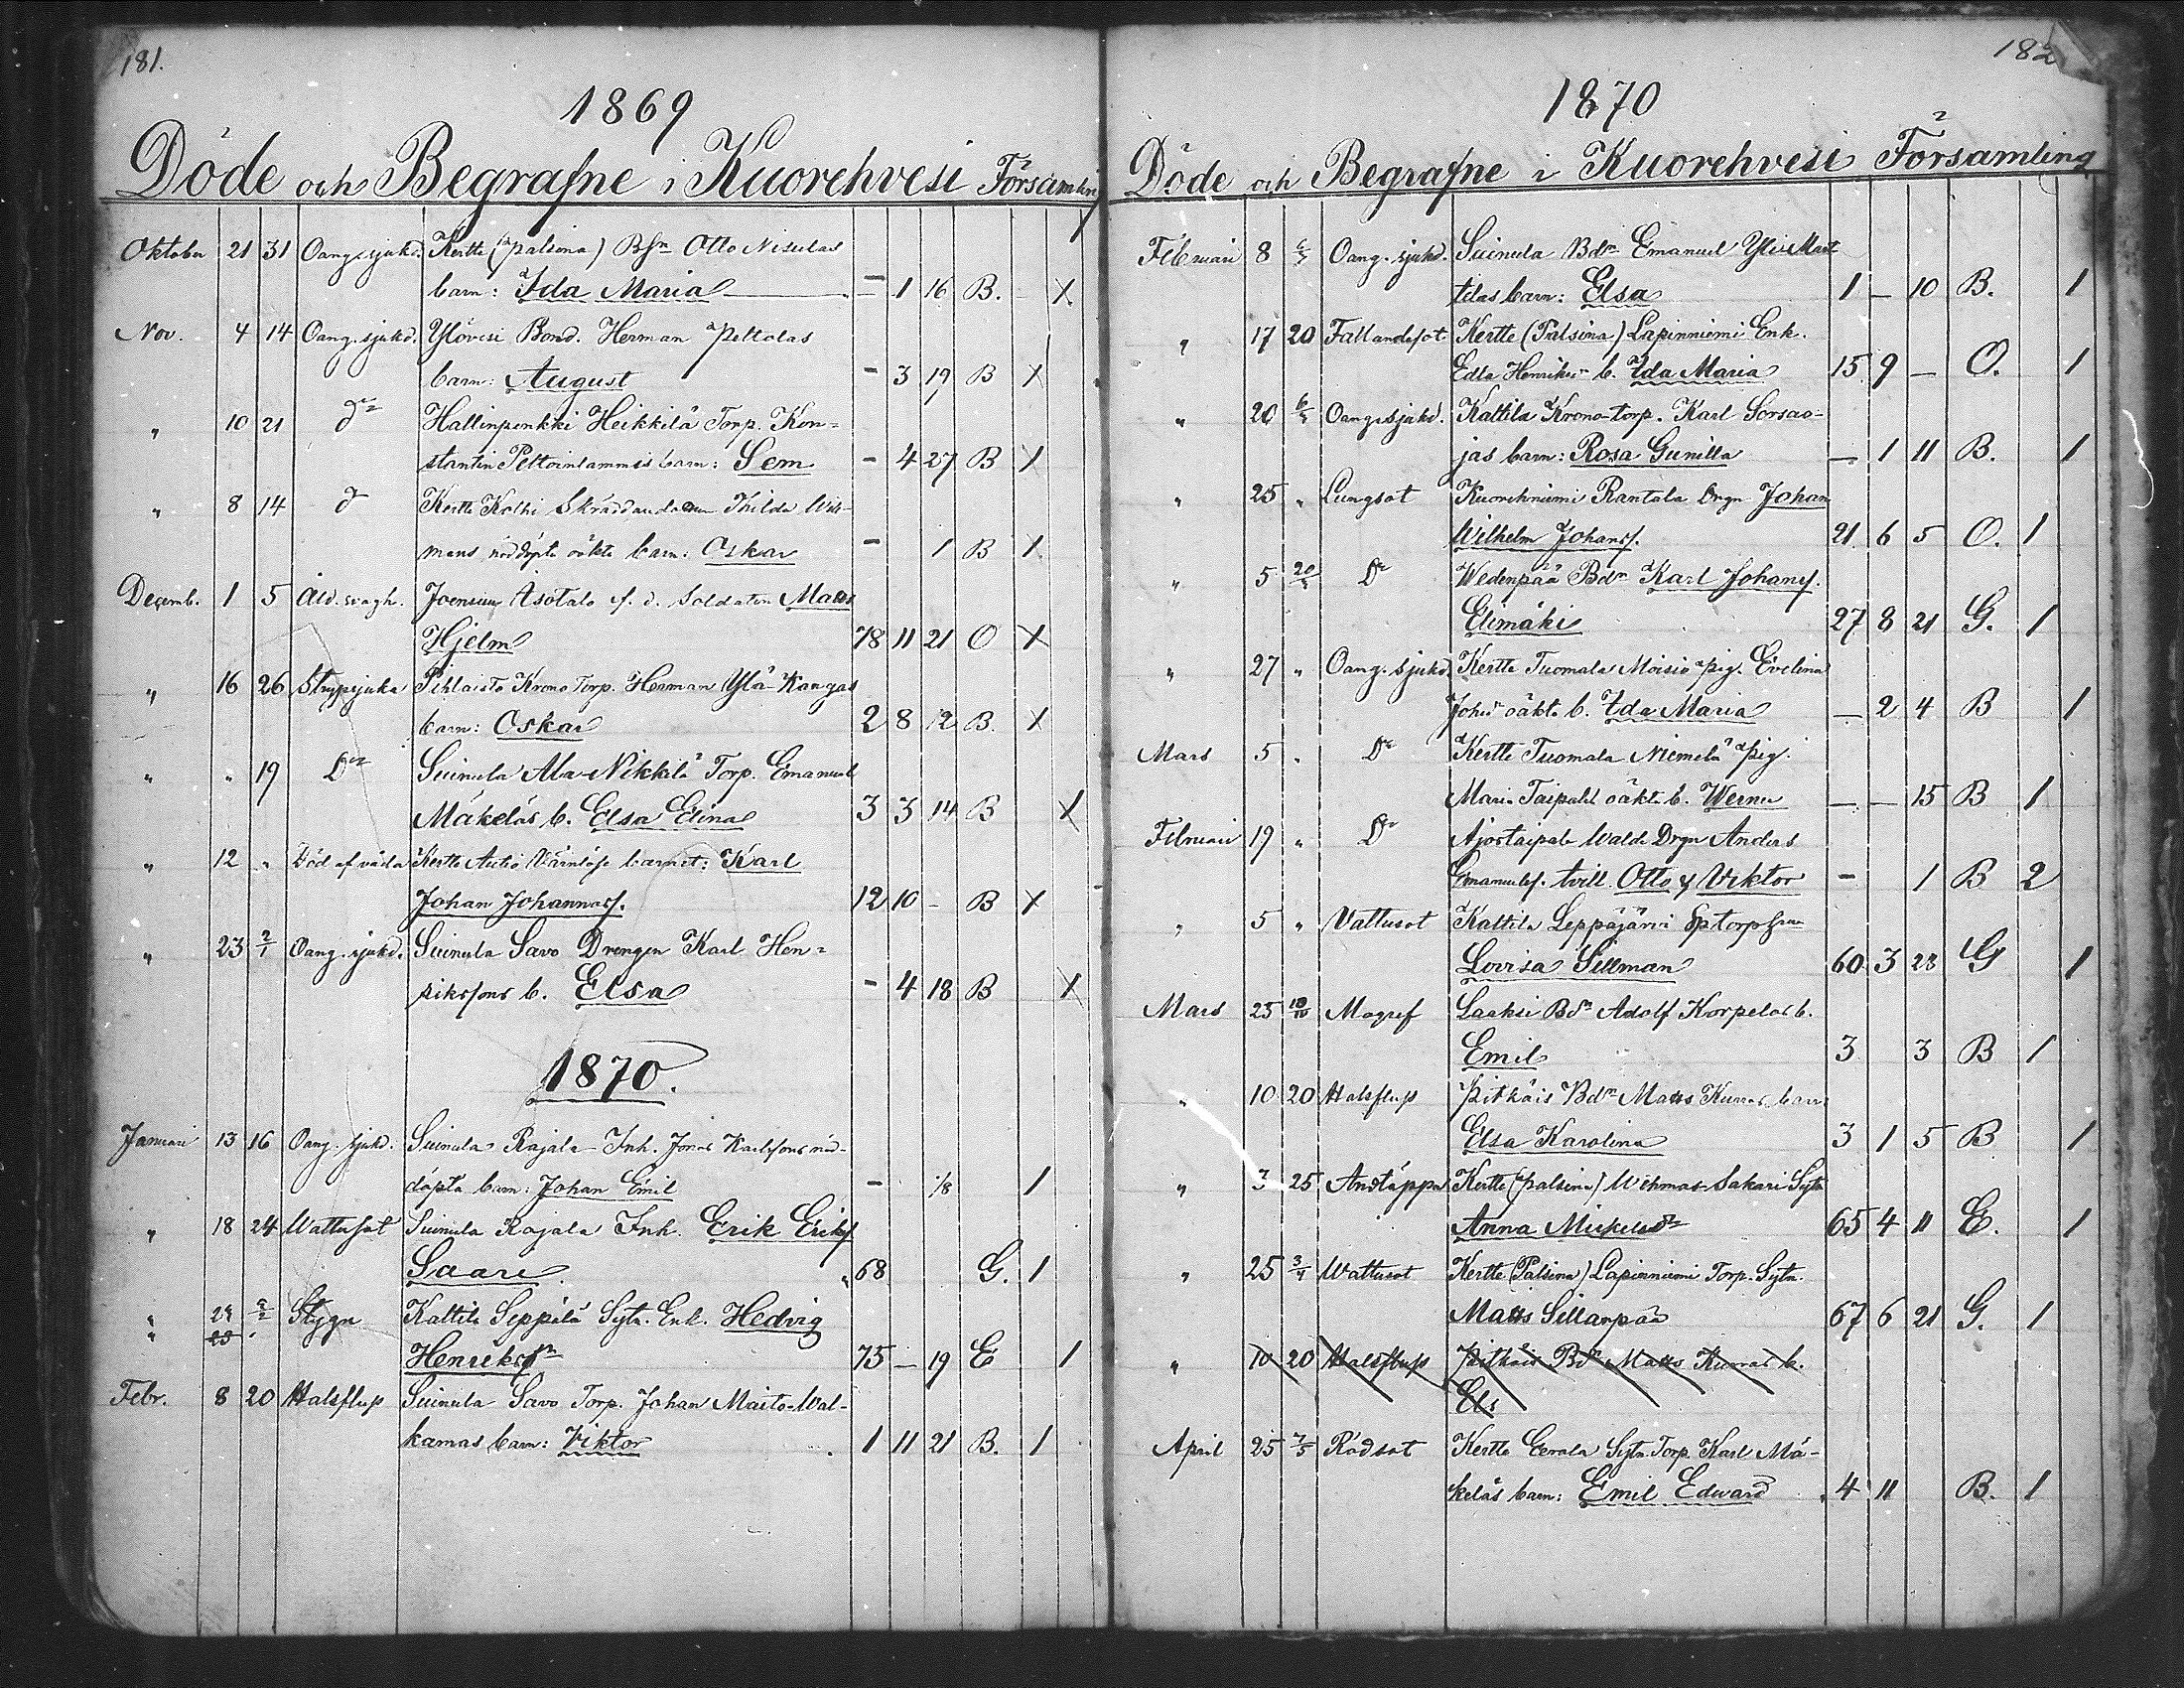 181.
1869
Döde och Begrafne i Kuorehvesi Församling
Oktober 21 31 Oang. sjukd. Kertte (Palsina) Bsn Otto Nisulas
barn: Ida Maria — 1 16 B. – X
Nov. 4 14 Oang. sjukd. Ylövesi Bond. Herman Peltolas
barn: August – 3 19 B X
" 10 21 do Hallinpenkki Heikkilä Torp. Kon=
stantin Peltoinlammis barn: Sem – 4 27 B X
" 8 14 do Kertte Kolhi Skräddaredottren Thilda Wil-
mans nöddöpta oäkta barn: Oskar – 1 B X
Decemb. 1 5 Åld. svagh. Joenniemi Asotalo f. d. Soldaten Matts
Hjelm 78 11 21 O X
" 16 26 Strypsjuka Pihlaisto Krono Torp. Herman Ylä-Kangas
barn: Oskar 2 8 12 B. X
" " 19 Do Suinula Ala-Nikkilä Torp. Emanuel
Mäkeläs b. Elsa Elina 3 3 14 B X
" 12 " Död af våda Kertte Autio Värnlösa barnet: Karl
Johan Johannass. 12 10 – B X
" 23 2/1 Oang. sjukd. Suinula Savo Drengen Karl Hen=
rikssons b. Elsa – 4 18 B X
1870.
Januari 13 16 Oang. sjukd. Suinula Rajala Inh. Jonas Karlssons nöd-
döpta barn: Johan Emil – 1/8 1
" 18 24 Wattusot Suinula Rajala Inh. Erik Eriks.
Saari. " 68 G. 1
" 24 2/2 Stygn Kattila Seppälä Sytn. Enk. Hedvig
" 23 Henriksdr 75 – 19 E 1
Febr. 8 20 Halsfluss Suinula Savo Torp. Johan Maito-Wal-
kamas barn: Viktor 1 11 21 B. 1
182
1870
Döde och Begrafne i Kuorehvesi Församling
Februari 8 6/3 Oang. sjukd. Suinula Bdn Emanuel Yli-Mart
tilas barn: Elsa 1 – 10 B. 1
" 17 20 Fallandesot Kertte (Palsina) Lapinniemi Enk.
Edla Henriksdr b. Ida Maria 15 9 – O. 1
" 20 6/3 Oang. sjukd. Kattila Krono-torp. Karl Sorsao-
jas barn: Rosa Gunilla — 1 11 B. 1
" 25 " Lungsot Kuorehniemi Rantala Drgn Johan
Wilhelm Johanss. 21 6 5 O. 1
" 5 20/3 Do Wedenpää Bdn Karl Johanss.
Elimäki 27 8 21 G. 1
" 27 " Oang. sjukd. Kertte Tuomala Moisio pig. Evelina
Johsdr oäkta b. Ida Maria — 2 4 B 1
Mars 5 " Do Kertte Tuomala Niemelä pig.
Maria Taipalets oäkta b. Werner — – 15 B 1
Februari 19 " Do Ajostaipale Walde Drgn Anders
Emanuelss. tvill. Otto & Viktor – 1 B 2
" 5 " Vattusot Kattila Leppäjärvi Sptorpshu
Lovisa Sillman 60 3 28 G 1
Mars 25 10/4 Magref Laaksi Bdn Adolf Korpelas b.
Emil 3 3 B 1
" 10 20 Halsfluss Pitkäis Bdn Matts Kurras barn
Elsa Karolina 3 1 5 B 1
" 3 25 Andtäppa Kertte (Palsina) Wihmas-Sakari Sytn
Anna Mickelsdr 65 4 11 E. 1
" 25 3/4 Wattusot Kertte (Palsina) Lapinniemi Torp. Sytn.
Matts Sillanpää 67 6 21 G. 1
" 10 20 Halsfluss Pitkäis Bdn Matts Kurras b.
Els
April 25 7/5 Rödsot Kertte Eerola Sytn. Torp. Karl Mä-
keläs barn: Emil Edward 4 11 B. 1